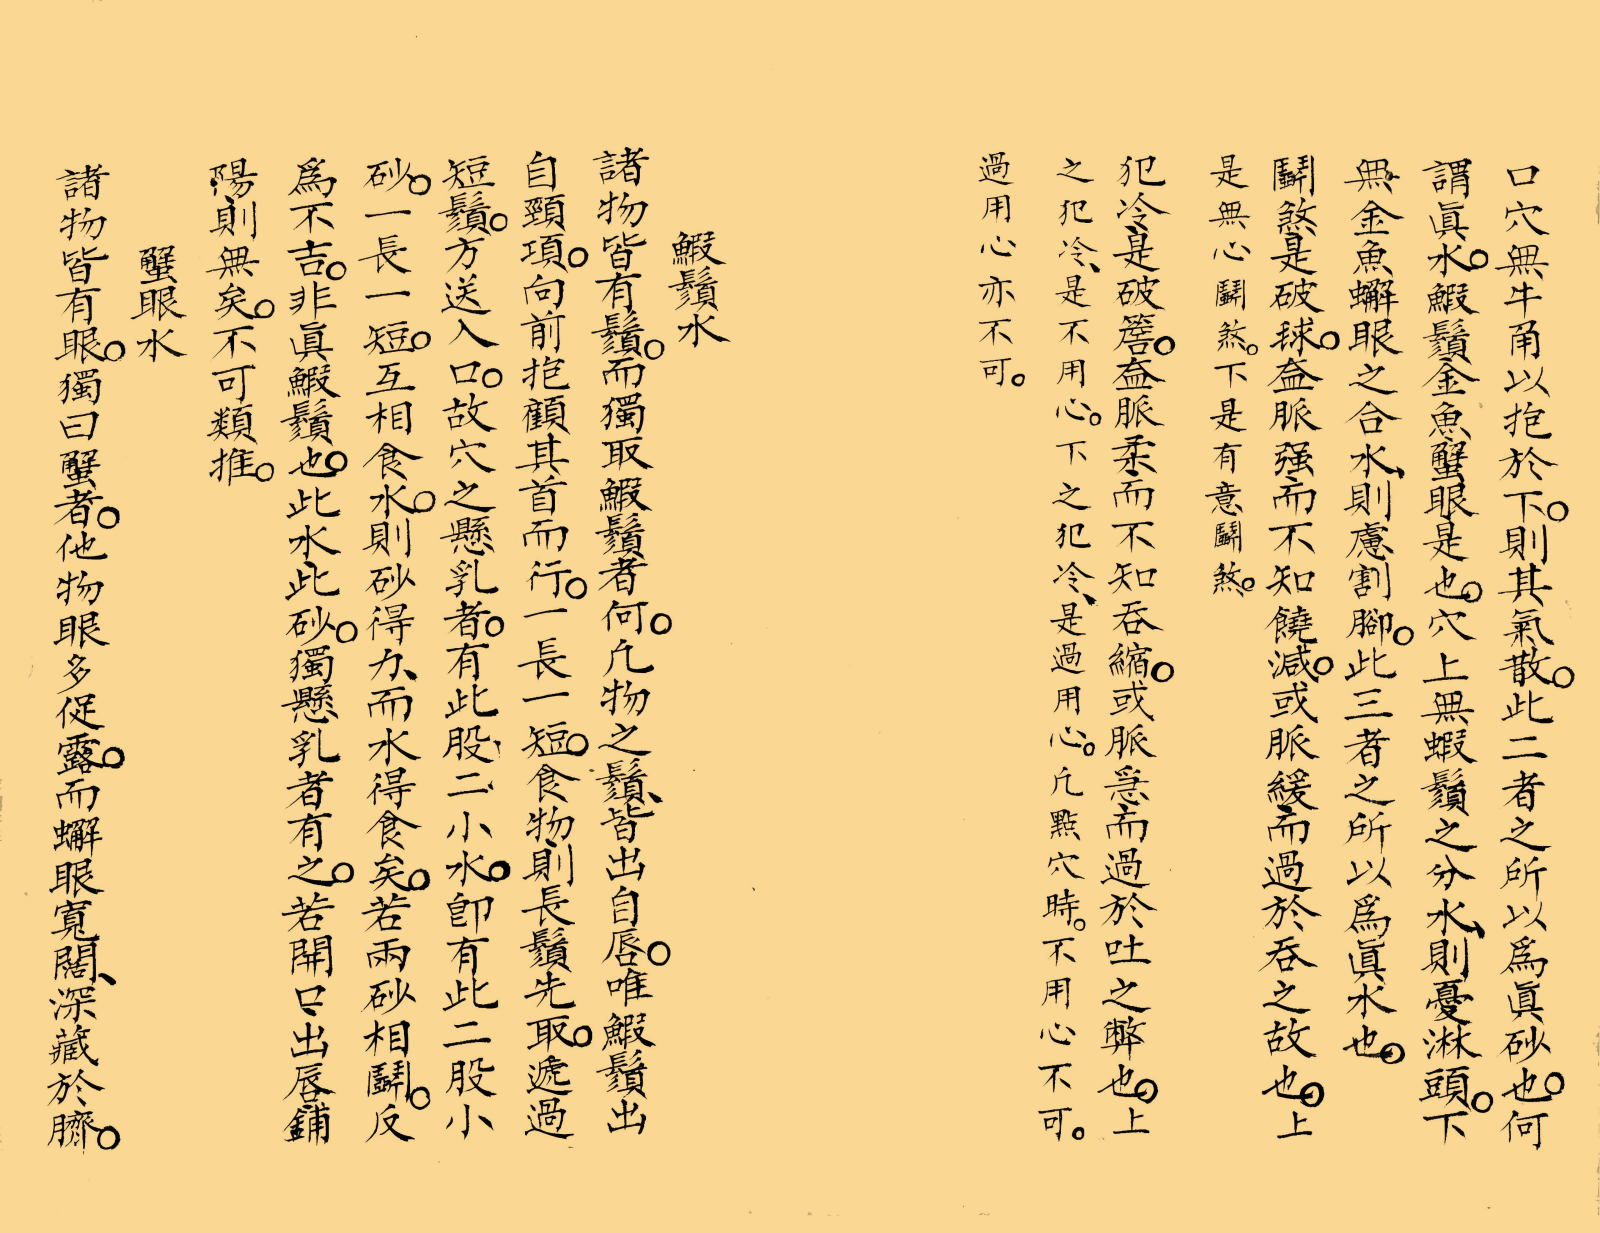 口穴無牛角以抱於下。則其氣散。此二者之所以爲眞砂也。何
謂眞水。鰕鬚金魚蟹眼是也。穴上無蝦鬚之分水、則憂淋頭。下
無金魚蠏眼之合水、則慮割腳。此三者之所以爲眞水也。
鬪煞是破球。盖脈强而不知饒減。或脈緩而過於呑之故也。上
是無心鬪煞。下是有意鬪煞。
犯冷是破簷。盖脈柔而不知呑縮。或脈急而過於吐之弊也。上
之犯冷、是不用心。下之犯冷、是過用心。凡點穴時。不用心不可。
過用心亦不可。
鰕鬚水
諸物皆有鬚。而獨取鰕鬚者何。凡物之鬚、皆出自唇。唯鰕鬚出
自頸項。向前抱顧其首而行。一長一短。食物則長鬚先取。遞過
短鬚。方送入口。故穴之懸乳者。有此股二小水。卽有此二股小
砂。一長一短。互相食水。則砂得力、而水得食矣。若兩砂相鬪。反
爲不吉。非眞鰕鬚也。此水此砂。獨懸乳者有之。若開口出唇鋪
陽則無矣。不可類推。
蟹眼水
諸物皆有眼。獨曰蟹者。他物眼多促露。而蠏眼寬闊、深藏於臍。